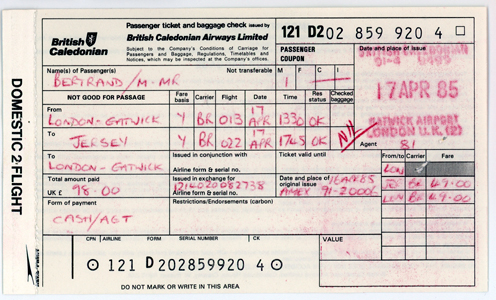 British Caledonian
Passenger ticket and baggage check issued by
British Caledonian Airways Limited
Subject to the Company's Conditions of Carriage for
Passengers and Baggage, Regulations, Timetables and
Notices, which may be inspected at the Company's offices.
121 D2 02 859 920 4
PASSENGER COUPON
Date and place of issue
BRITISH CALEDONIAN
17 APR 85
GATWICK AIRPORT
LONDON U.K. (2)
Name(s) of Passenger(s) Not transferable M F C I
BERTRAND/M.MR 1
NOT GOOD FOR PASSAGE Fare basis Carrier Flight Date Time Res status Checked baggage
From LONDON-GATWICK Y BR 013 17 APR 1330 OK
To JERSEY Y BR 022 17 APR 1745 OK NIL
To LONDON-GATWICK
Agent 81
Issued in conjunction with Ticket valid until
Airline form & serial no.
From/to Carrier Fare
LON
JER BR 49.00
LON BR 49.00
Total amount paid
UK £ 98.00
Issued in exchange for
Airline form & serial no.
Date and place of original issue 16APR85
Form of payment
CASH/AGT
Restrictions/Endorsements (carbon)
CPN AIRLINE FORM SERIAL NUMBER CK
121 D 202859920 4
VALUE
DO NOT MARK OR WRITE IN THIS AREA
DOMESTIC 2-FLIGHT